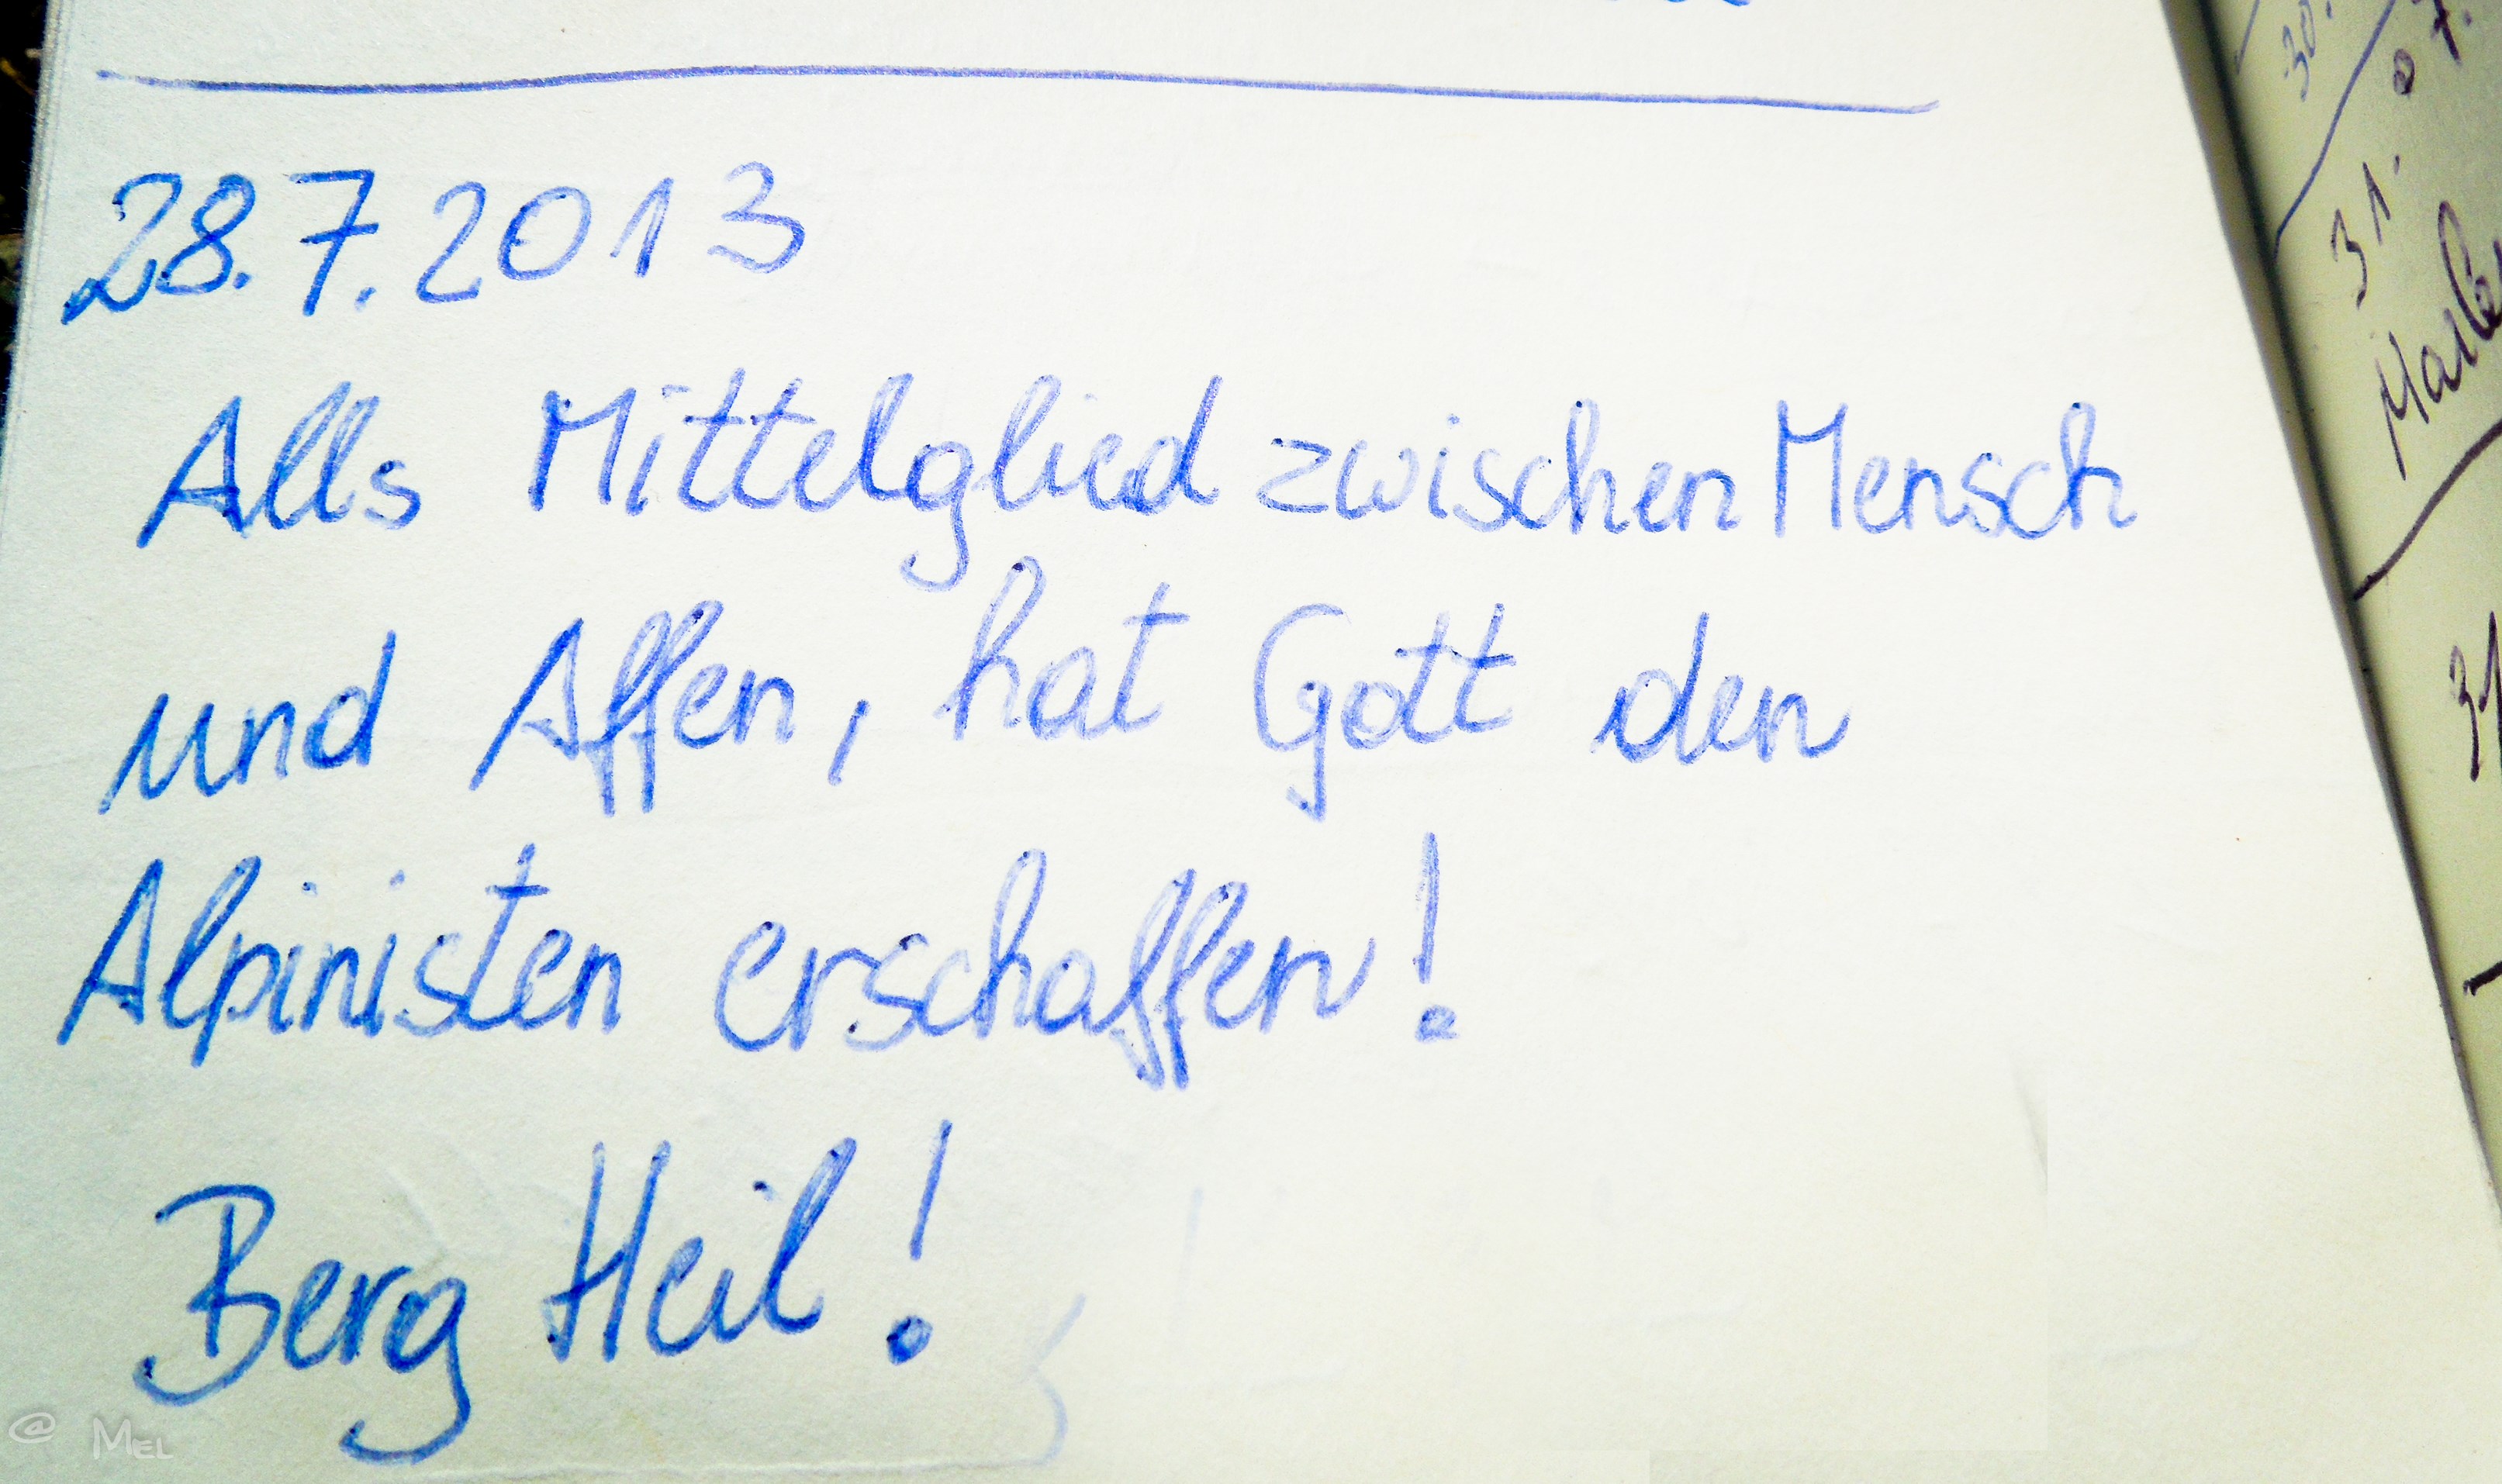 28.7.2013
Alls Mittelglied zwischen Mensch
und Affen, hat Gott den
Alpinisten erschaffen!
Berg Heil!
@ MEL
30.
07.
31.
31